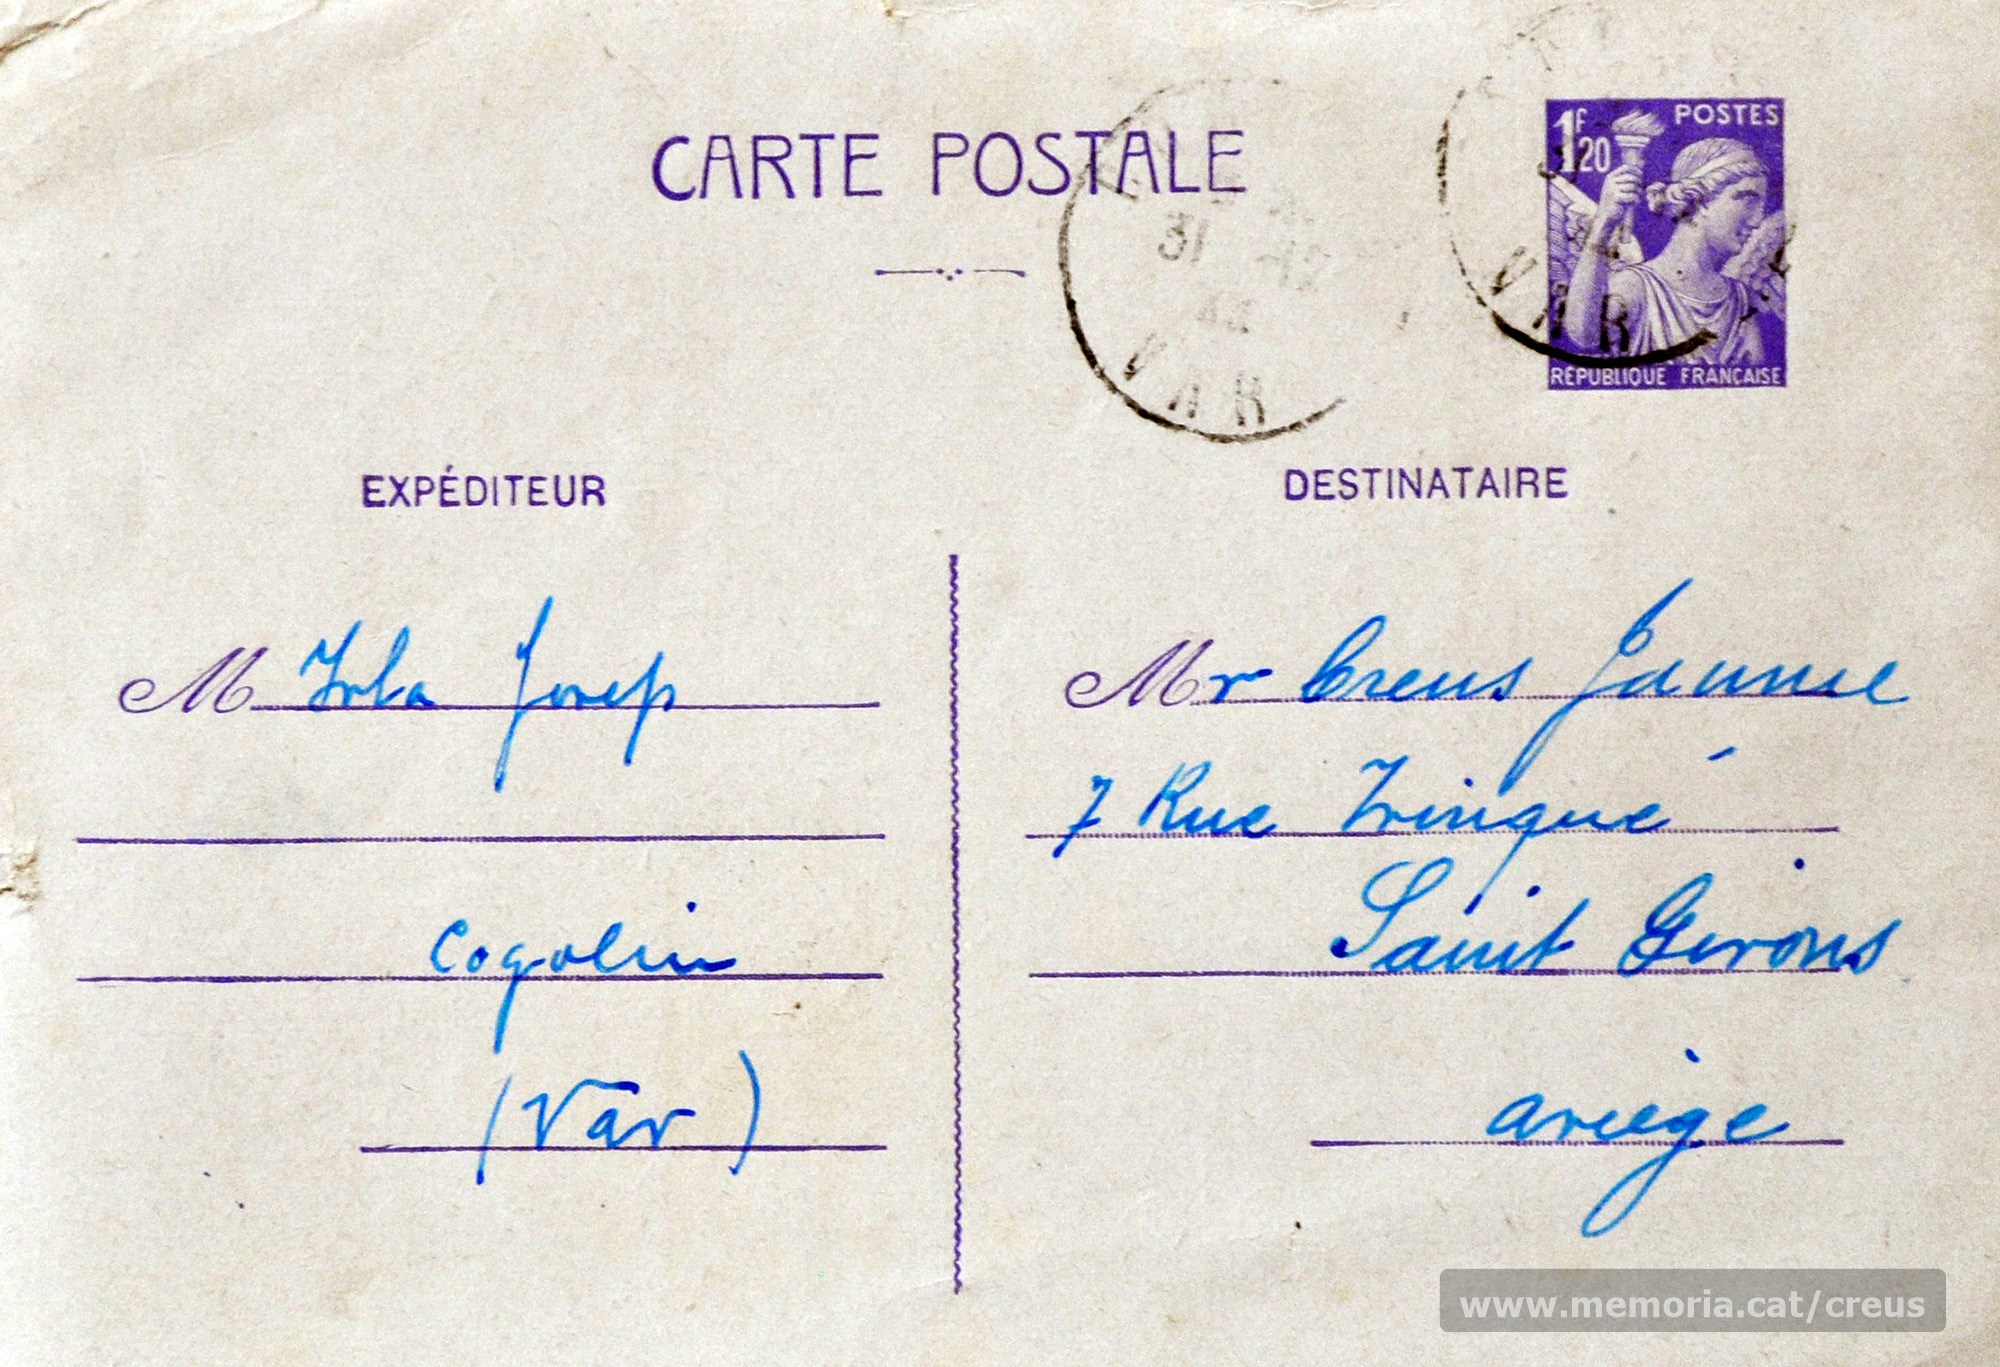 CARTE POSTALE
POSTES
1F
20
RÉPUBLIQUE FRANÇAISE
VAR
VAR
EXPÉDITEUR
M Irla Josep
Cogolin
(Var)
DESTINATAIRE
Mr Creus Jaume
7 Rue Trinqué
Saint Girons
Ariège
www.memoria.cat/creus